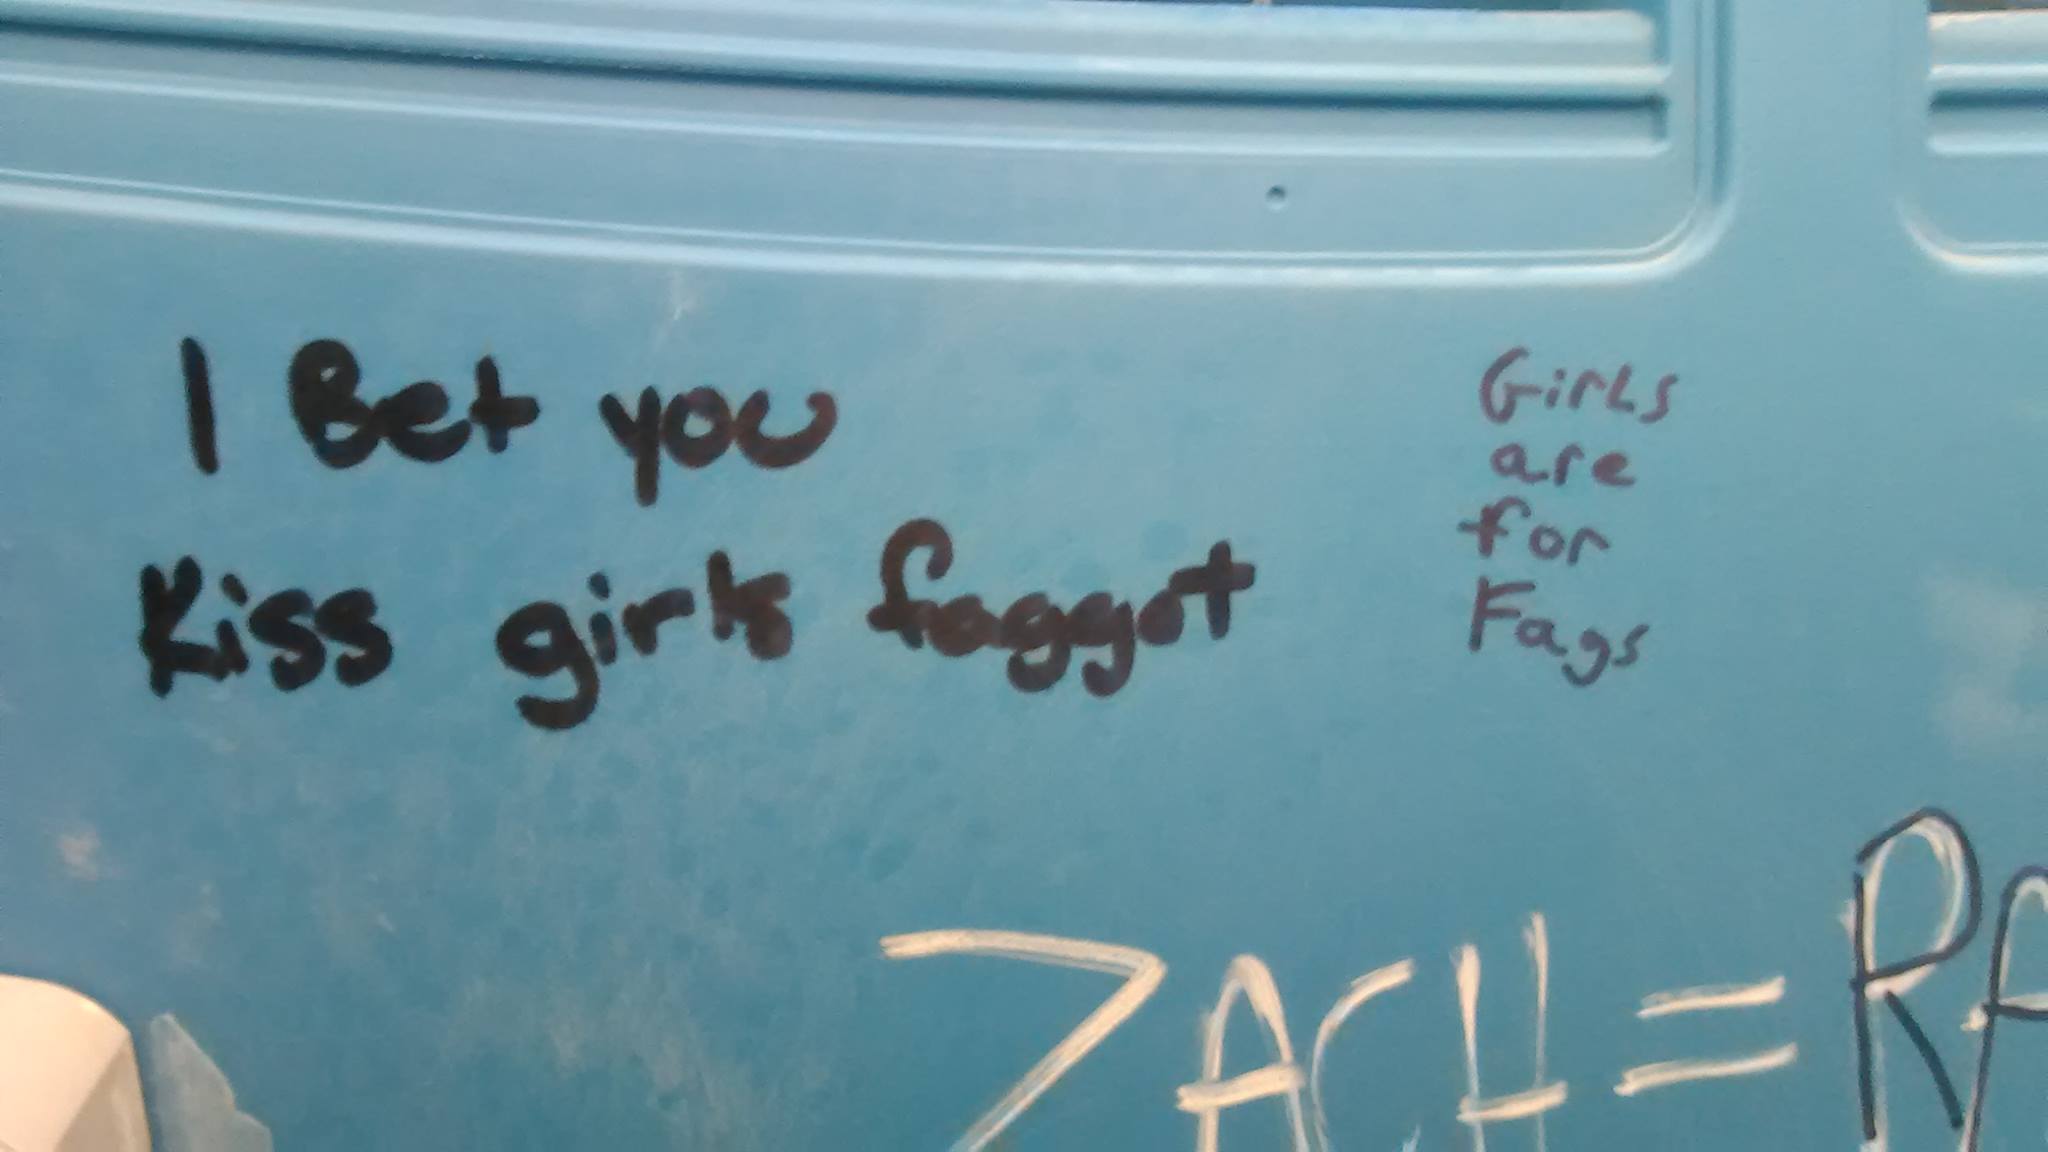 I Bet you
Kiss girls faggot
Girls
are
for
Fags
ZACH = RA